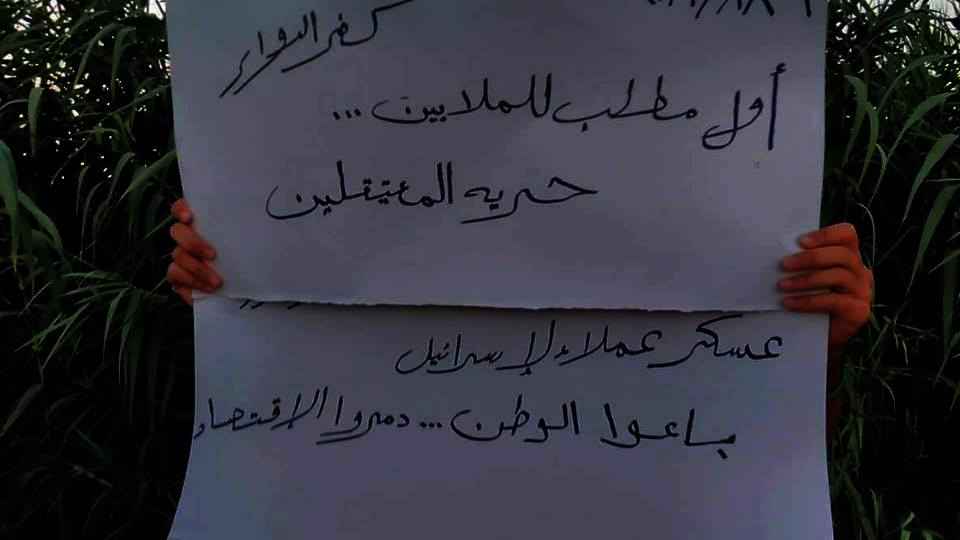 كفر الدوار
أول مطلب للملايين...
حريه المعتقلين
عسكر عملاء لإسرائيل
باعوا الوطن... دمروا الاقتصاد